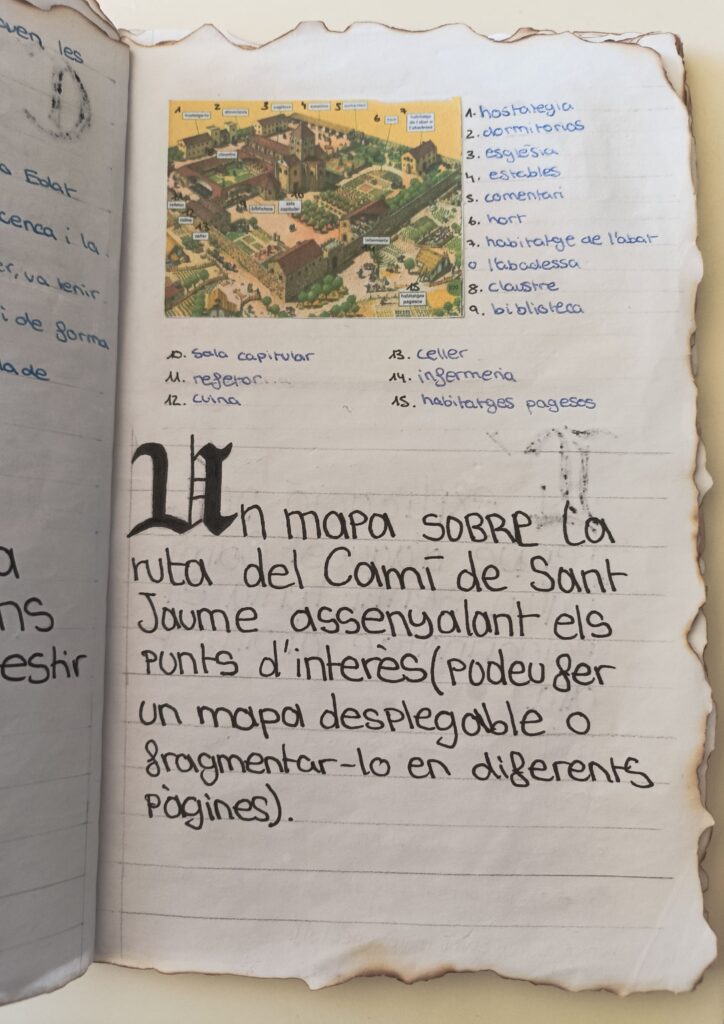 uen les
Edat
cenca i la
er, va tenir
i de forma
la de
a
ns
estir
1. hostalegia
2. dormitorios
3. església
4. estables
5. comentari
6. hort
7. habitatge de l'abat
o l'abadessa
8. claustre
9. biblioteca
10. sala capitular
11. refetor....
12. cuina
13. celler
14. infermeria
15. habitatges pagesos
1 2 3 4 5 6 7
hort
habitatge
de l'abat o
l'abadessa
claustre
biblioteca
sala
capitular
cuina
celler
infermeria
15
habitatges
pagesos
Un mapa SOBRE la
ruta del Camí de Sant
Jaume assenyalant els
punts d'interès (podeu fer
un mapa desplegable o
fragmentar-lo en diferents
pàgines).